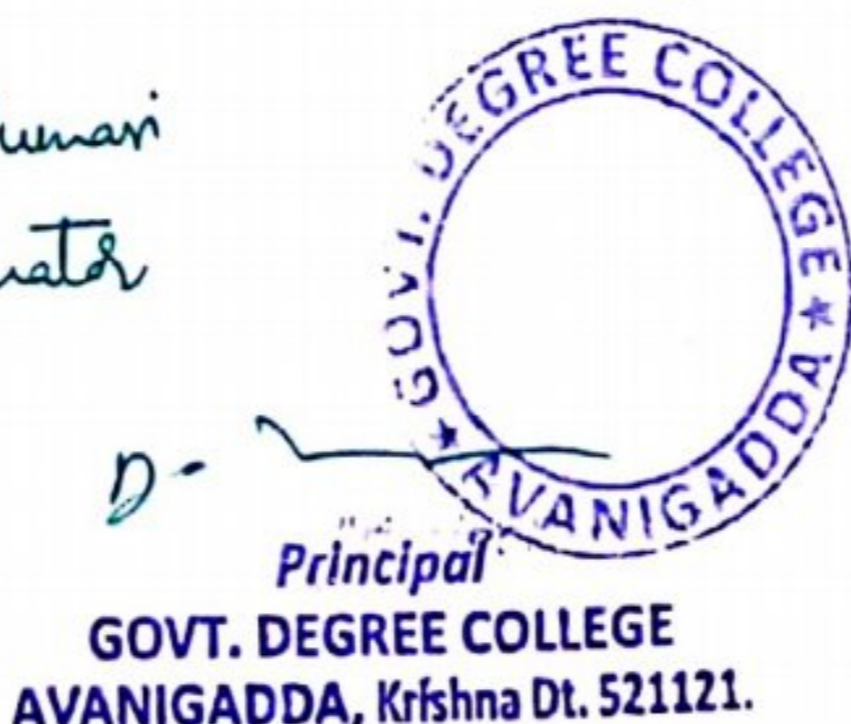 umari
nator
GOVT. DEGREE COLLEGE ★
★ AVANIGADDA
D-
Principal
GOVT. DEGREE COLLEGE
AVANIGADDA, Krishna Dt. 521121.